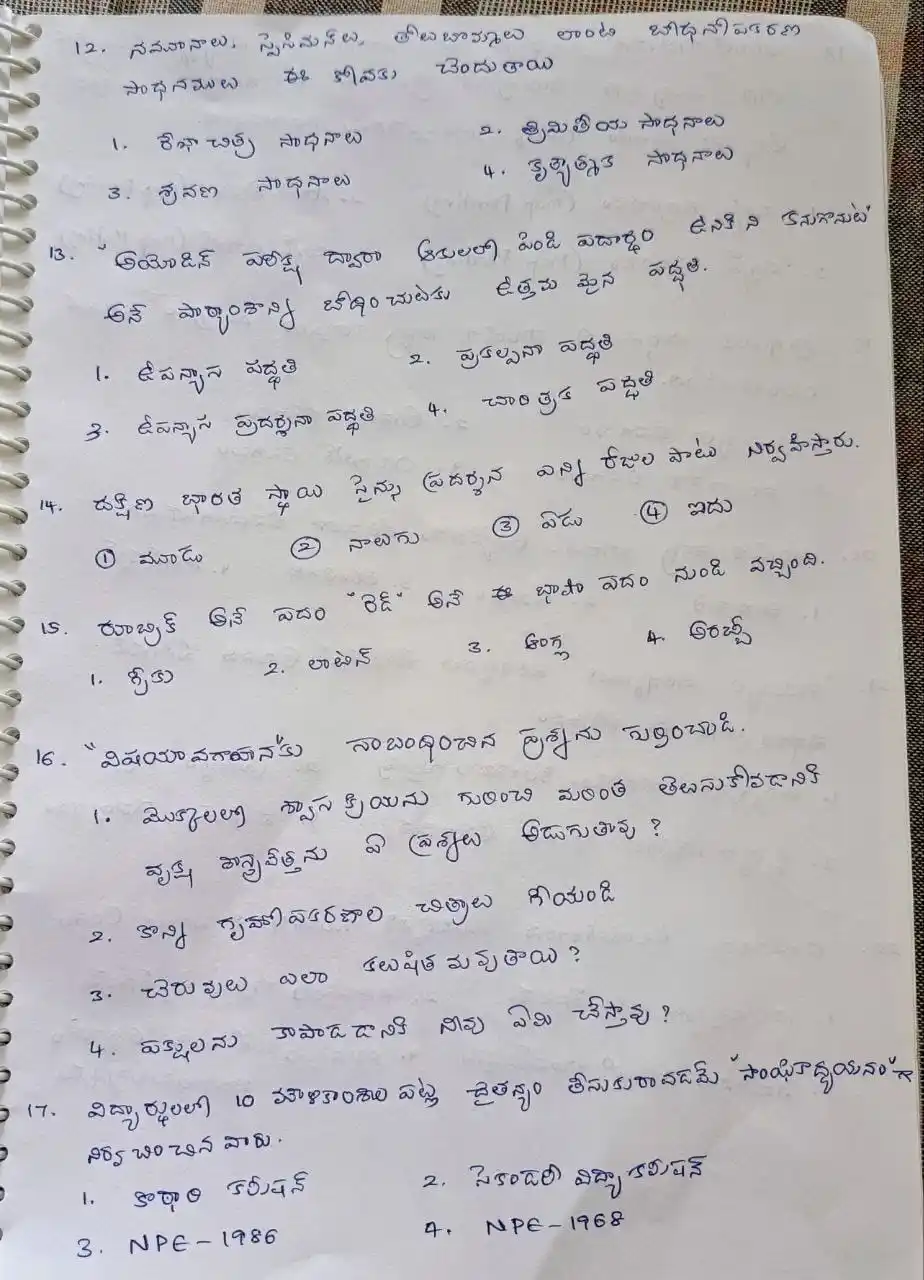 12. నమూనాలు, స్పెసిమన్‌లు, తోలుబొమ్మలు లాంటి బోధనోపకరణ
సాధనములు ఈ కోవకు చెందుతాయి
1. రేఖా చిత్ర సాధనాలు 2. త్రిమితీయ సాధనాలు
3. శ్రవణ సాధనాలు 4. కృత్యాత్మక సాధనాలు
13. "అయోడిన్ పరీక్ష ద్వారా ఆకులలో పిండి పదార్థం ఉనికి ని కనుగొనుట"
అనే పాఠ్యాంశాన్ని బోధించుటకు ఉత్తమ మైన పద్ధతి.
1. ఉపన్యాస పద్ధతి 2. ప్రకల్పనా పద్ధతి
3. ఉపన్యాస ప్రదర్శనా పద్ధతి 4. చారిత్రక పద్ధతి
14. దక్షిణ భారత స్థాయి సైన్సు ప్రదర్శన ఎన్ని రోజుల పాటు నిర్వహిస్తారు.
① మూడు ② నాలుగు ③ ఏడు ④ ఐదు
15. రూబ్రిక్ అనే పదం "రెడ్" అనే ఈ భాషా పదం నుండి వచ్చింది.
1. గ్రీకు 2. లాటిన్ 3. ఆంగ్ల 4. అరబ్బీ
16. "విషయావగాహన"కు సంబంధించిన ప్రశ్నను గుర్తించండి.
1. మొక్కలలో శ్వాస క్రియను గురించి మరింత తెలుసుకోవడానికి
వృక్ష శాస్త్రవేత్తను ఏ ప్రశ్నలు అడుగుతావు?
2. కొన్ని గృహోపకరణాల చిత్రాలు గీయండి
3. చెరువులు ఎలా కలుషిత మవుతాయి?
4. పక్షులను కాపాడడానికి నీవు ఏమి చేస్తావు?
17. విద్యార్థులలో 10 మౌళికాంశాల పట్ల చైతన్యం తీసుకురావడమే "సాంఘికాధ్యయనం"గా
నిర్వచించిన వారు.
1. కొఠారి కమీషన్ 2. సెకండరీ విద్యా కమీషన్
3. NPE-1986 4. NPE-1968